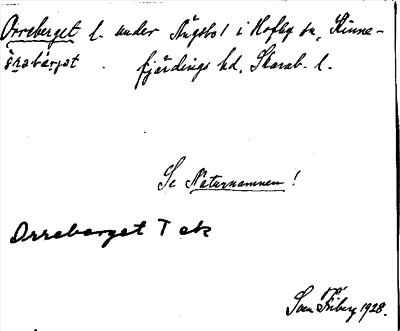 Orreberget l. under Ängsbol i Hofby sn, Kinne-
fjärdings hd, Skarab. l.
Se Naturnamnen!
Orreberget T ek
Sven Friberg 1928.